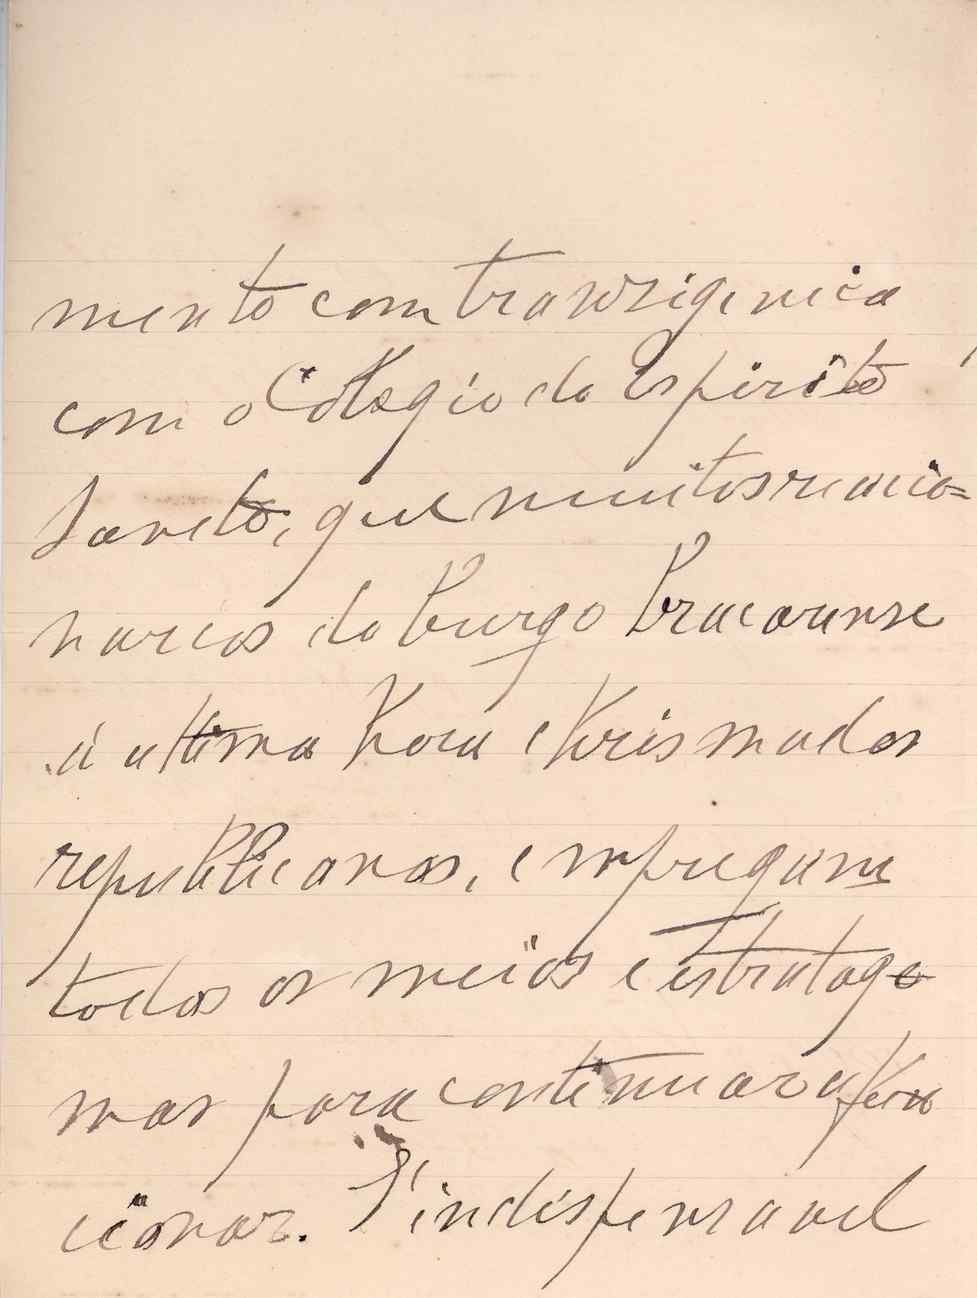 mento com tranzigencia
com o Collegio do Espirito
Santo, que muitos reacio=
narios do burgo bracarense
á ultima hora chrismados
republicanos, empregam
todos os meios e estratage
mas para continuar a fun
cionar. É indispensavel